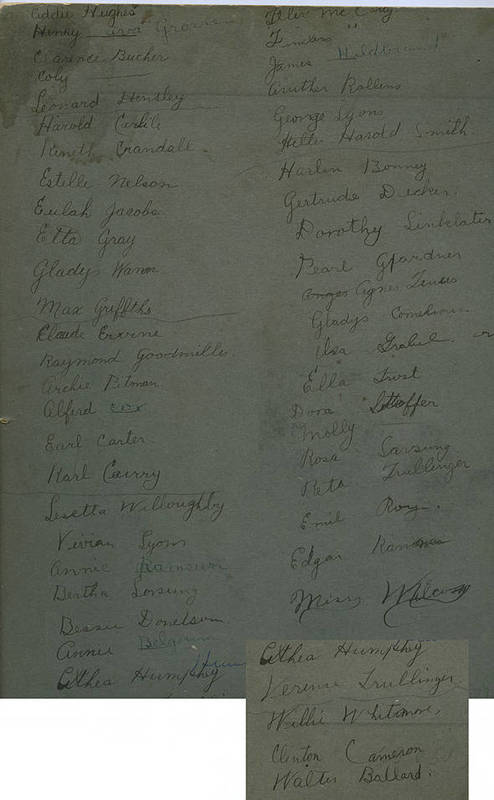 Addie Hughes
Henry Groves
Clarence Bucher
Coly
Leonard Hensley
Harold Carlile
Keneth Crandale
Estelle Nelson
Eulah Jacobs
Etta Gray
Gladys Wann
Max Griffths
Claude Ervine
Raymond Goodmiller
Archie Pitman
Alferd Cox
Earl Carter
Karl Curry
Lesetta Willoughby
Vivian Lyons
Annie Ramsum
Bertha Sorsung
Bessie Donelson
Annie Belgium
Althea Humphry
Tiler
Timless
James Hildbrand
Anuther Rollins
George Lyons
Harold Smith
Harlin Bonney
Gertrude Decker
Dorothy Linklater
Pearl Gardner
Agnes
Gladys
Ilsa Grabel
Ella Trost
Dora Stoffer
Molly
Rosa Sarsung
Reta Trullinger
Emil Roy
Edgar
Miss Wilcox
Althea Humphry
Verense Trullinger
Willie Whitmore
Clinton Cameron
Walter Ballard.